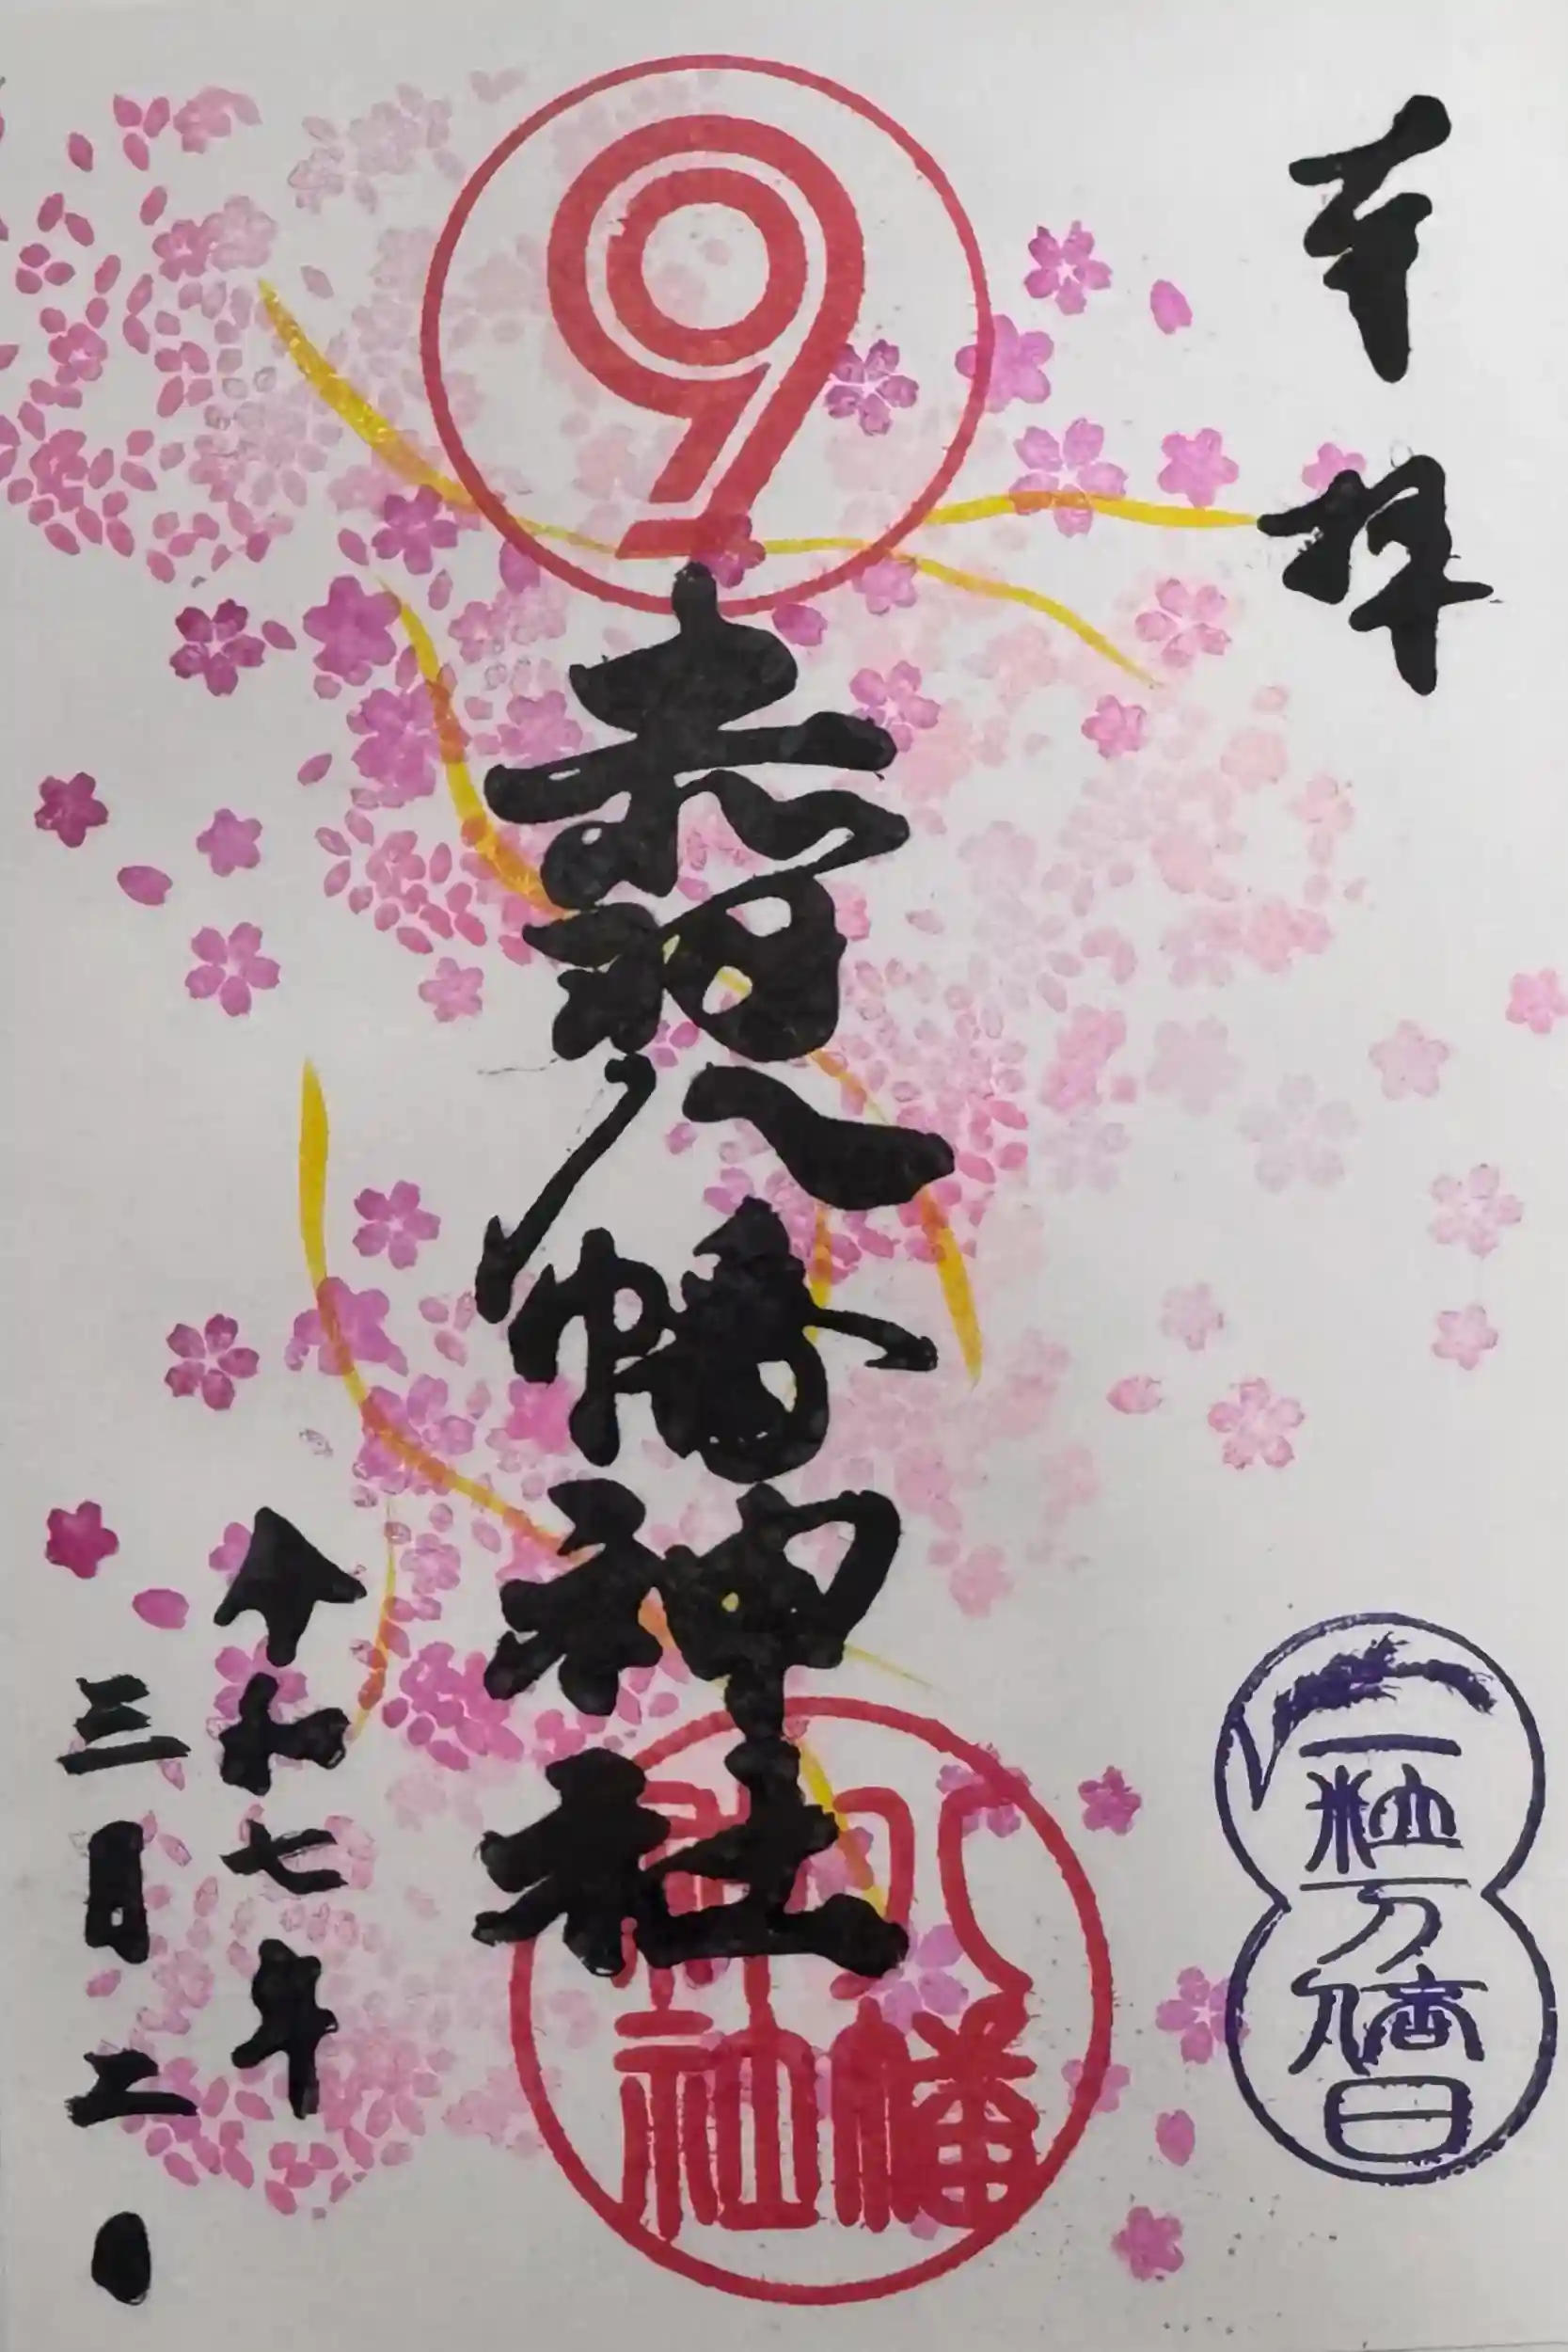 奉拝
9
赤羽八幡神社
八幡
神社
一粒万倍日
令和七年
三月二日